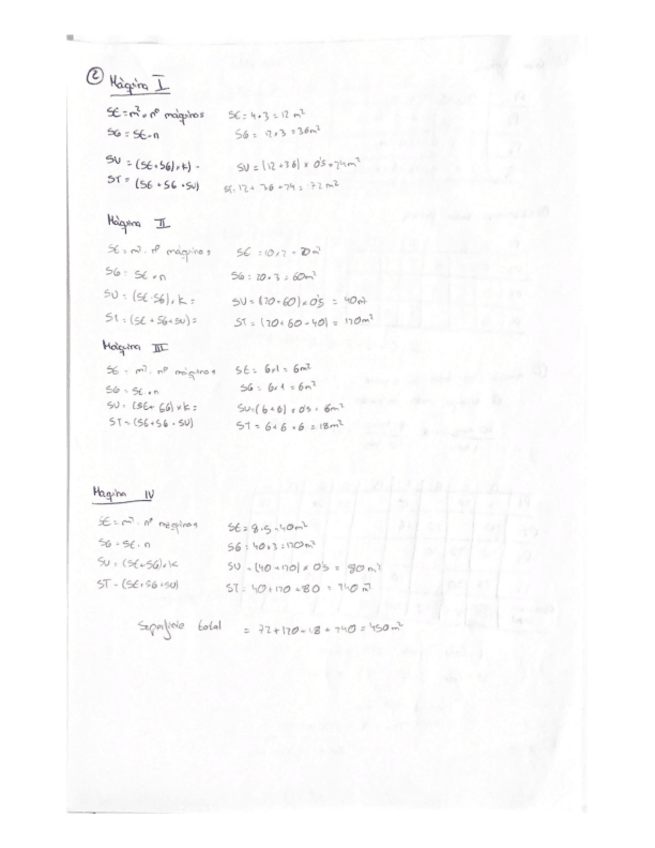 ② Màquina I
SE = m² · nº máquinas SE = 4·3 = 12 m²
SG = SE·n SG = 12·3 = 36 m²
SU = (SE+SG)·K) = SU = (12+36)·0'5 = 24 m²
ST = (SE + SG + SU) ST = 12 + 36 + 24 = 72 m²
Máquina II
SE = m² · nº máquinas SE = 10·2 = 20 m²
SG = SE·n SG = 20·3 = 60 m²
SU = (SE·SG)·K = SU = (20+60)·0'5 = 40 m²
ST = (SE + SG + SU) = ST = (20+60+40) = 120 m²
Máquina III
SE = m² · nº máquinas SE = 6·1 = 6 m²
SG = SE·n SG = 6·1 = 6 m²
SU = (SE+SG)·K = SU = (6+6)·0'5 = 6 m²
ST = (SE+SG+SU) ST = 6+6+6 = 18 m²
Maquina IV
SE = m² · nº máquinas SE = 8·5 = 40 m²
SG = SE·n SG = 40·3 = 120 m²
SU = (SE+SG)·K SU = (40+120)·0'5 = 80 m²
ST = (SE+SG+SU) ST = 40+120+80 = 240 m²
Superficie total = 72+120+18+240 = 450 m²